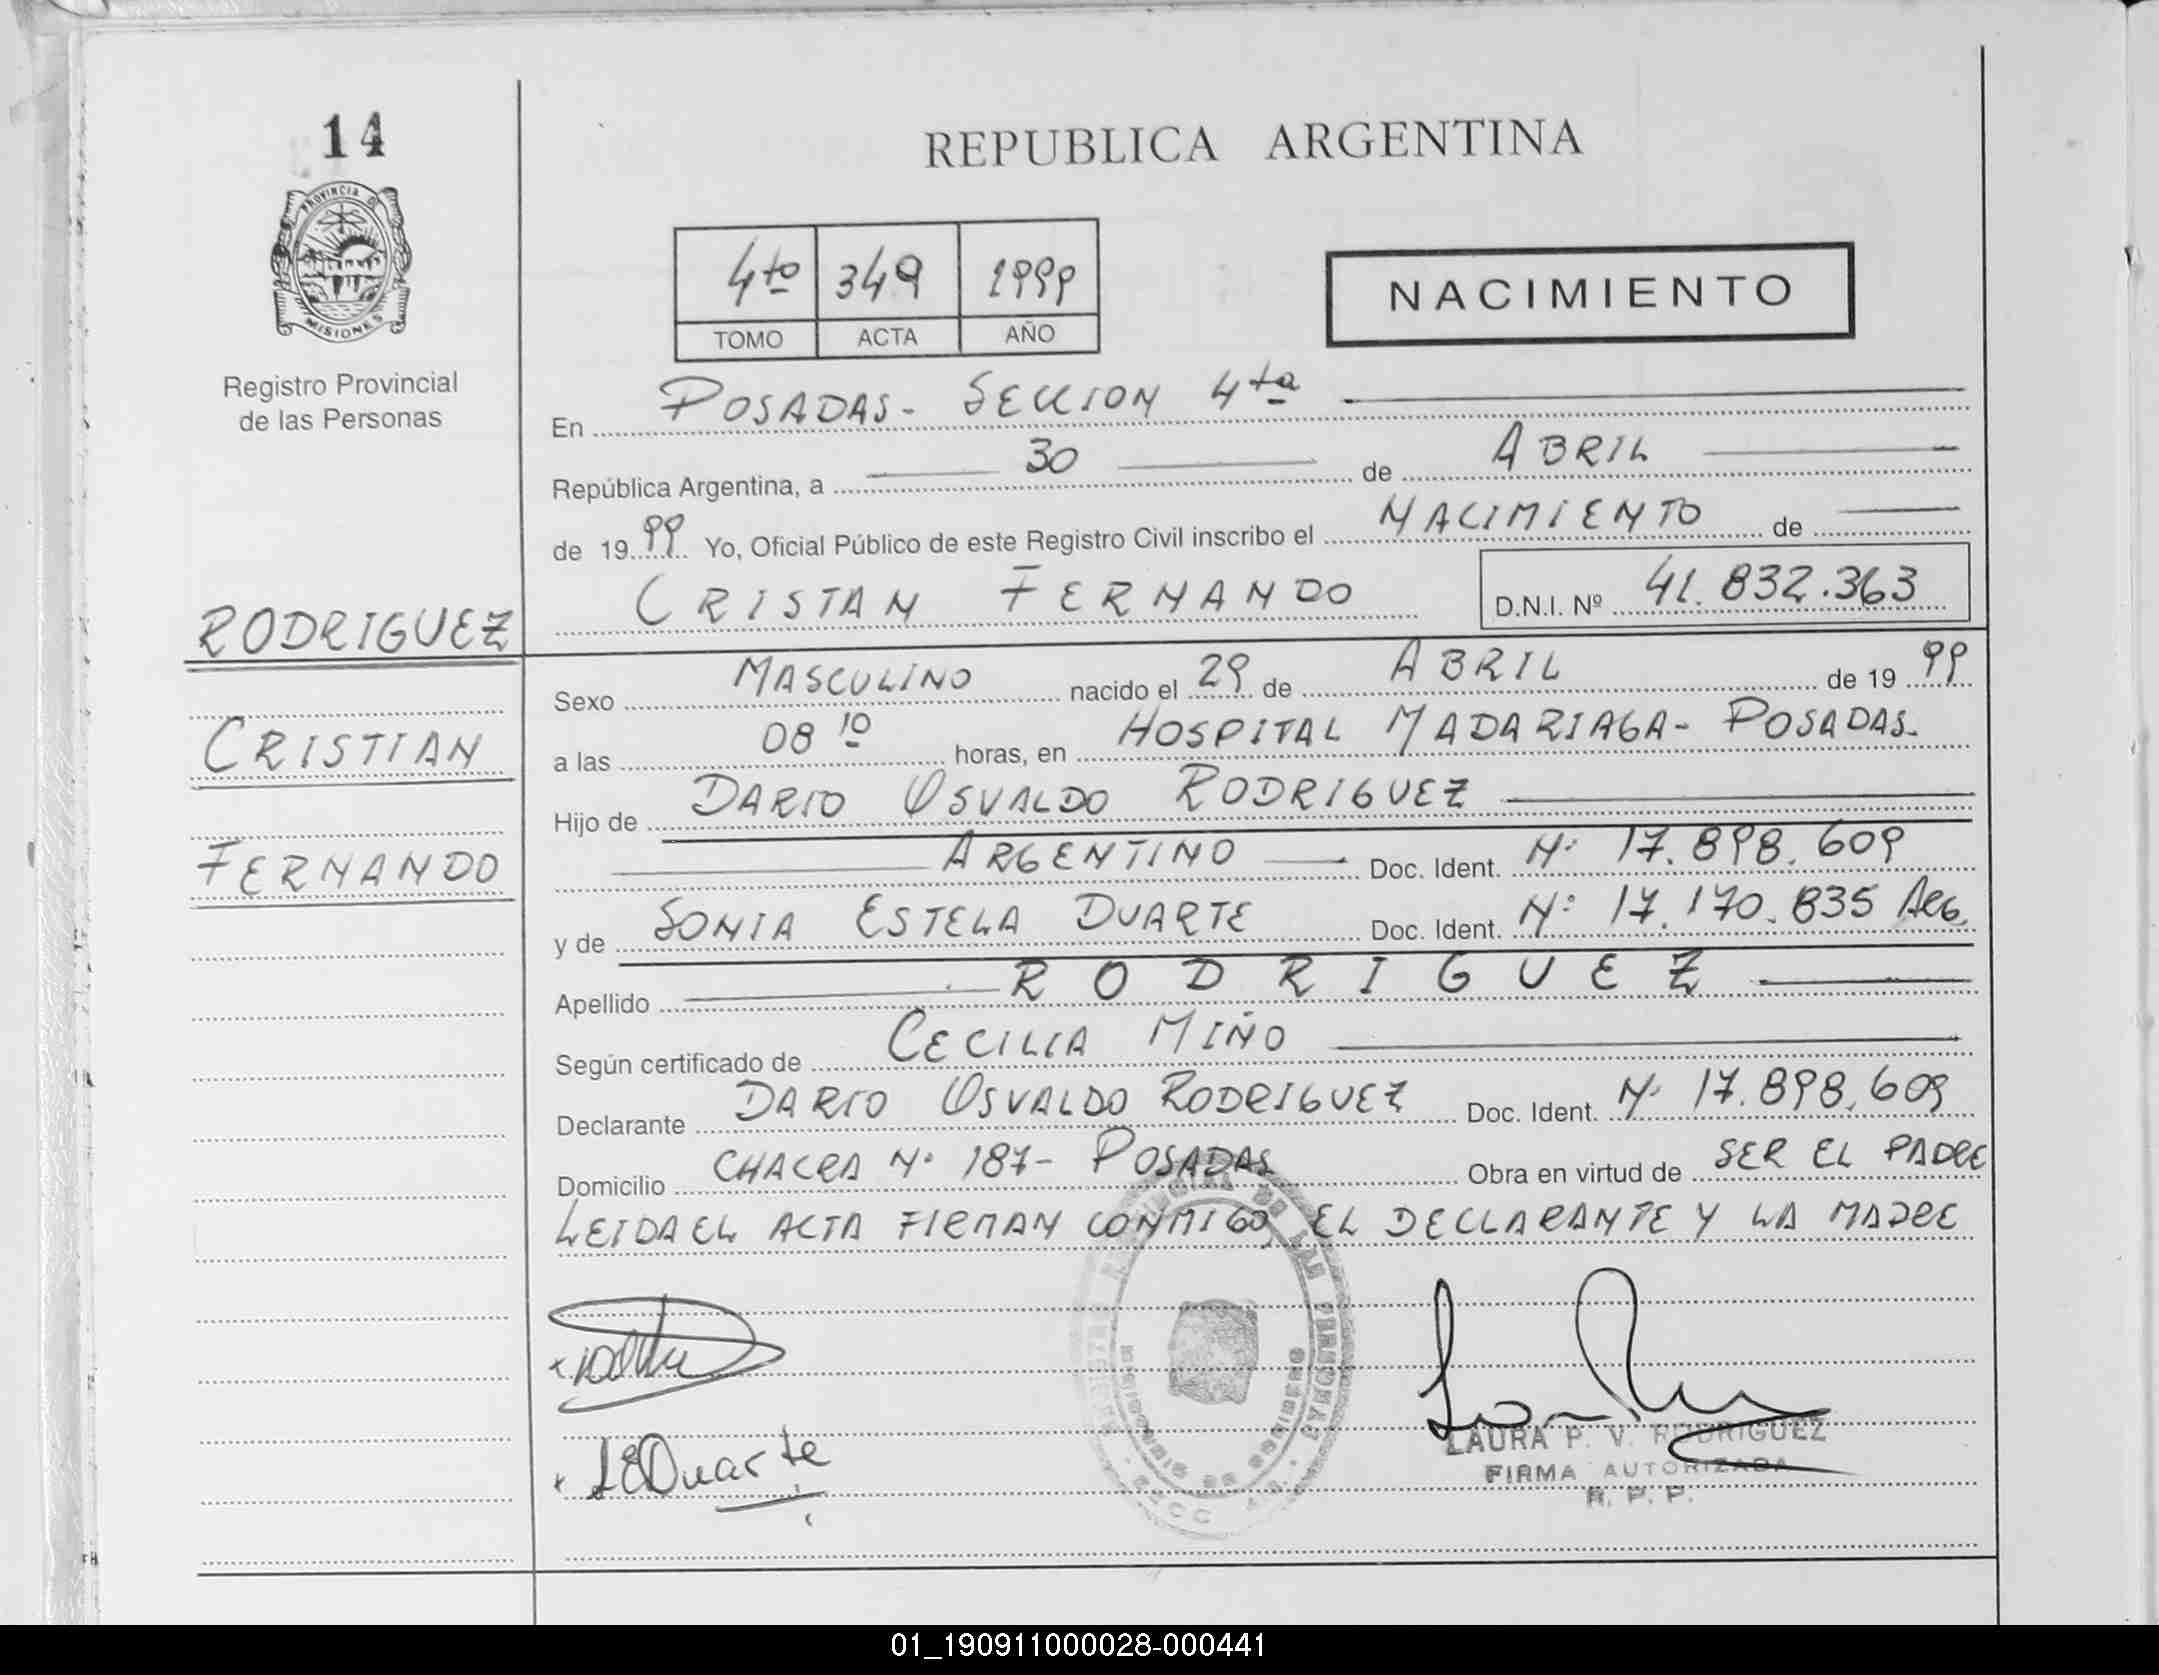 14
PROVINCIA D
MISIONES
Registro Provincial
de las Personas
RODRIGUEZ
CRISTIAN
FERNANDO
REPUBLICA ARGENTINA
4to 349 1999
TOMO ACTA AÑO
NACIMIENTO
En POSADAS - SECCION 4ta
República Argentina, a 30 de ABRIL
de 1999 Yo, Oficial Público de este Registro Civil inscribo el NACIMIENTO de
CRISTAN FERNANDO D.N.I. Nº 41.832.363
Sexo MASCULINO nacido el 29 de ABRIL de 1999
a las 08 10 horas, en HOSPITAL MADARIAGA - POSADAS.
Hijo de DARIO OSVALDO RODRIGUEZ
ARGENTINO Doc. Ident. Nº 17.898.609
y de SONIA ESTELA DUARTE Doc. Ident. Nº 17.170.835 ARG.
Apellido RODRIGUEZ
Según certificado de CECILIA MIÑO
Declarante DARIO OSVALDO RODRIGUEZ Doc. Ident. Nº 17.898.609
Domicilio CHACRA Nº 187 - POSADAS Obra en virtud de SER EL PADRE
LEIDA EL ACTA FIRMAN CONMIGO, EL DECLARANTE Y LA MADRE
x
x SEDuarte
LAURA P. V. RODRIGUEZ
FIRMA AUTORIZADA
R. P. P.
01_190911000028-000441